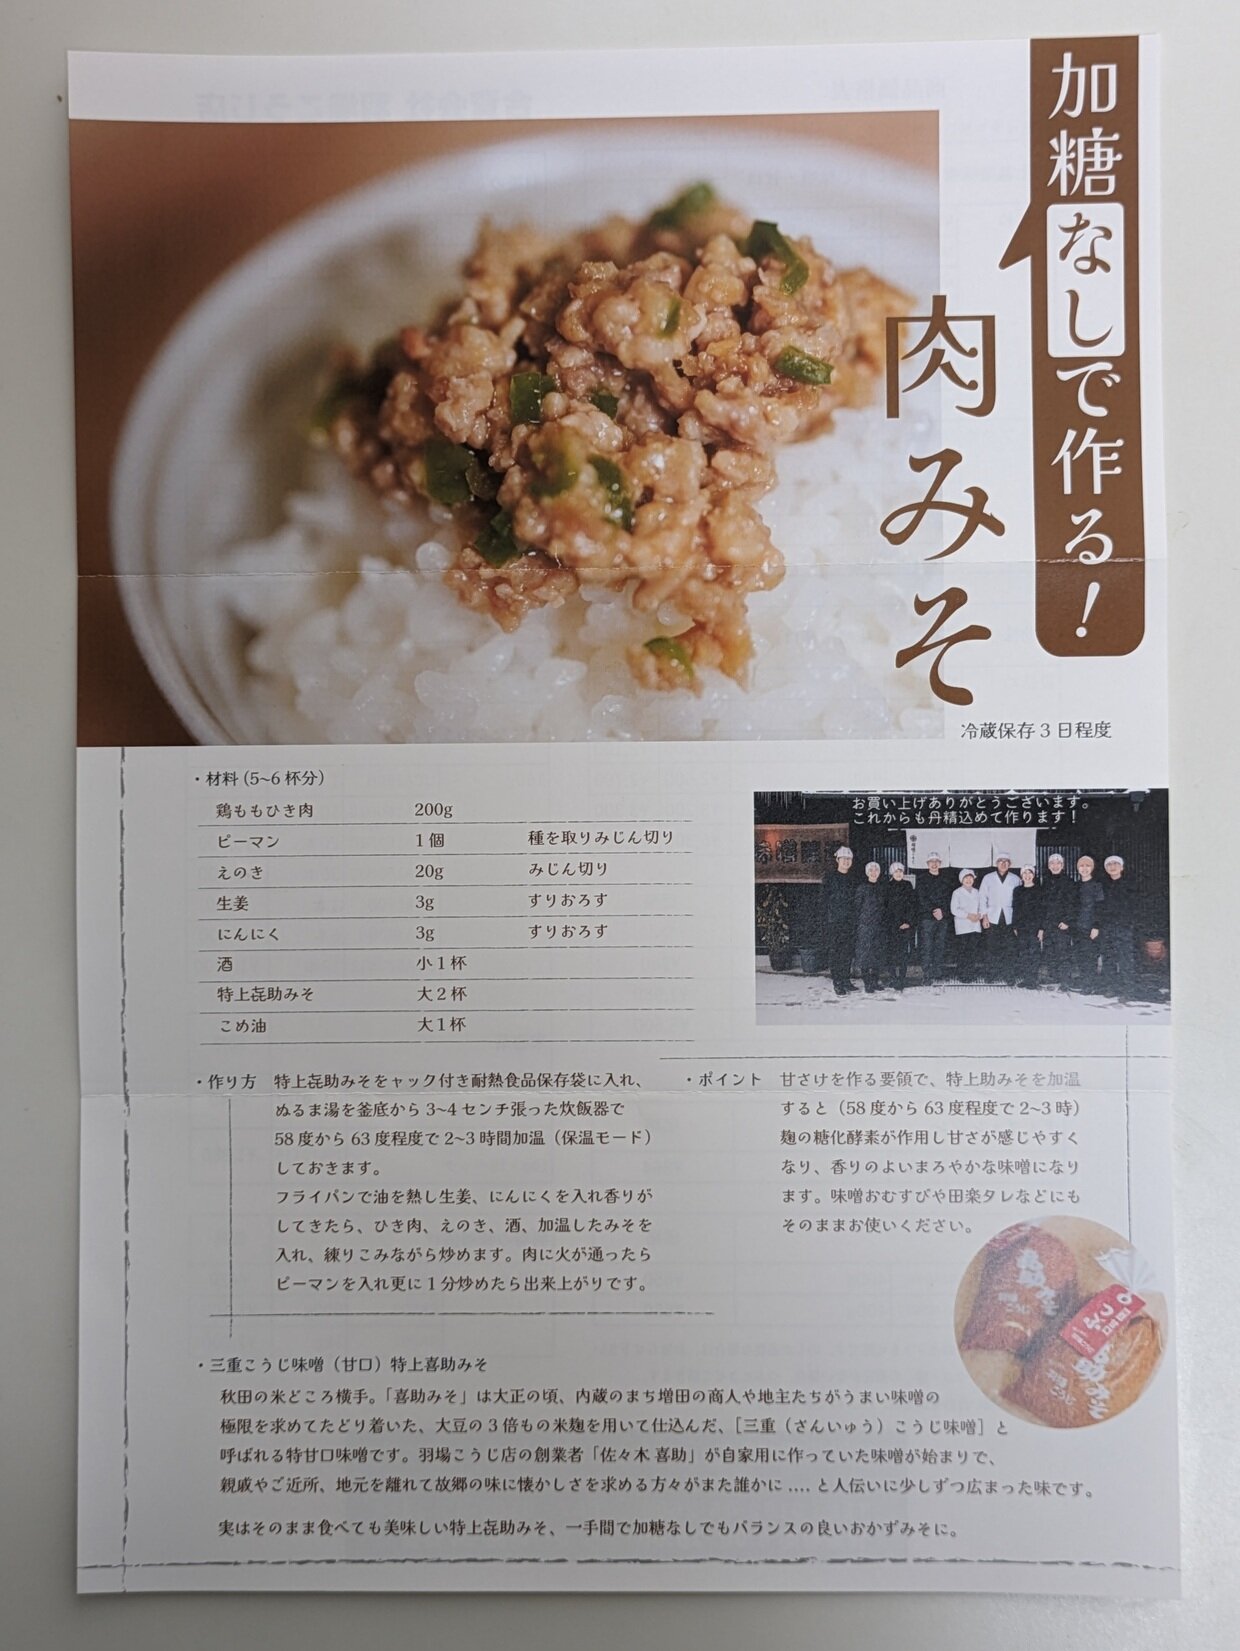 加糖なしで作る！
肉みそ
冷蔵保存 3 日程度
・材料 (5~6 杯分)
鶏ももひき肉 200g
ピーマン 1 個 種を取りみじん切り
えのき 20g みじん切り
生姜 3g すりおろす
にんにく 3g すりおろす
酒 小 1 杯
特上㐂助みそ 大 2 杯
こめ油 大 1 杯
お買い上げありがとうございます。
これからも丹精込めて作ります！
・作り方 特上㐂助みそをャック付き耐熱食品保存袋に入れ、
ぬるま湯を釜底から 3~4 センチ張った炊飯器で
58 度から 63 度程度で 2~3 時間加温（保温モード）
しておきます。
フライパンで油を熱し生姜、にんにくを入れ香りが
してきたら、ひき肉、えのき、酒、加温したみそを
入れ、練りこみながら炒めます。肉に火が通ったら
ピーマンを入れ更に 1 分炒めたら出来上がりです。
・ポイント 甘さけを作る要領で、特上助みそを加温
すると（58 度から 63 度程度で 2~3 時）
麹の糖化酵素が作用し甘さが感じやすく
なり、香りのよいまろやかな味噌になり
ます。味噌おむすびや田楽タレなどにも
そのままお使いください。
・三重こうじ味噌（甘口）特上喜助みそ
秋田の米どころ横手。「喜助みそ」は大正の頃、内蔵のまち増田の商人や地主たちがうまい味噌の
極限を求めてたどり着いた、大豆の 3 倍もの米麹を用いて仕込んだ、［三重（さんいゅう）こうじ味噌］と
呼ばれる特甘口味噌です。羽場こうじ店の創業者「佐々木 喜助」が自家用に作っていた味噌が始まりで、
親戚やご近所、地元を離れて故郷の味に懐かしさを求める方々がまた誰かに .... と人伝いに少しずつ広まった味です。
実はそのまま食べても美味しい特上㐂助みそ、一手間で加糖なしでもバランスの良いおかずみそに。